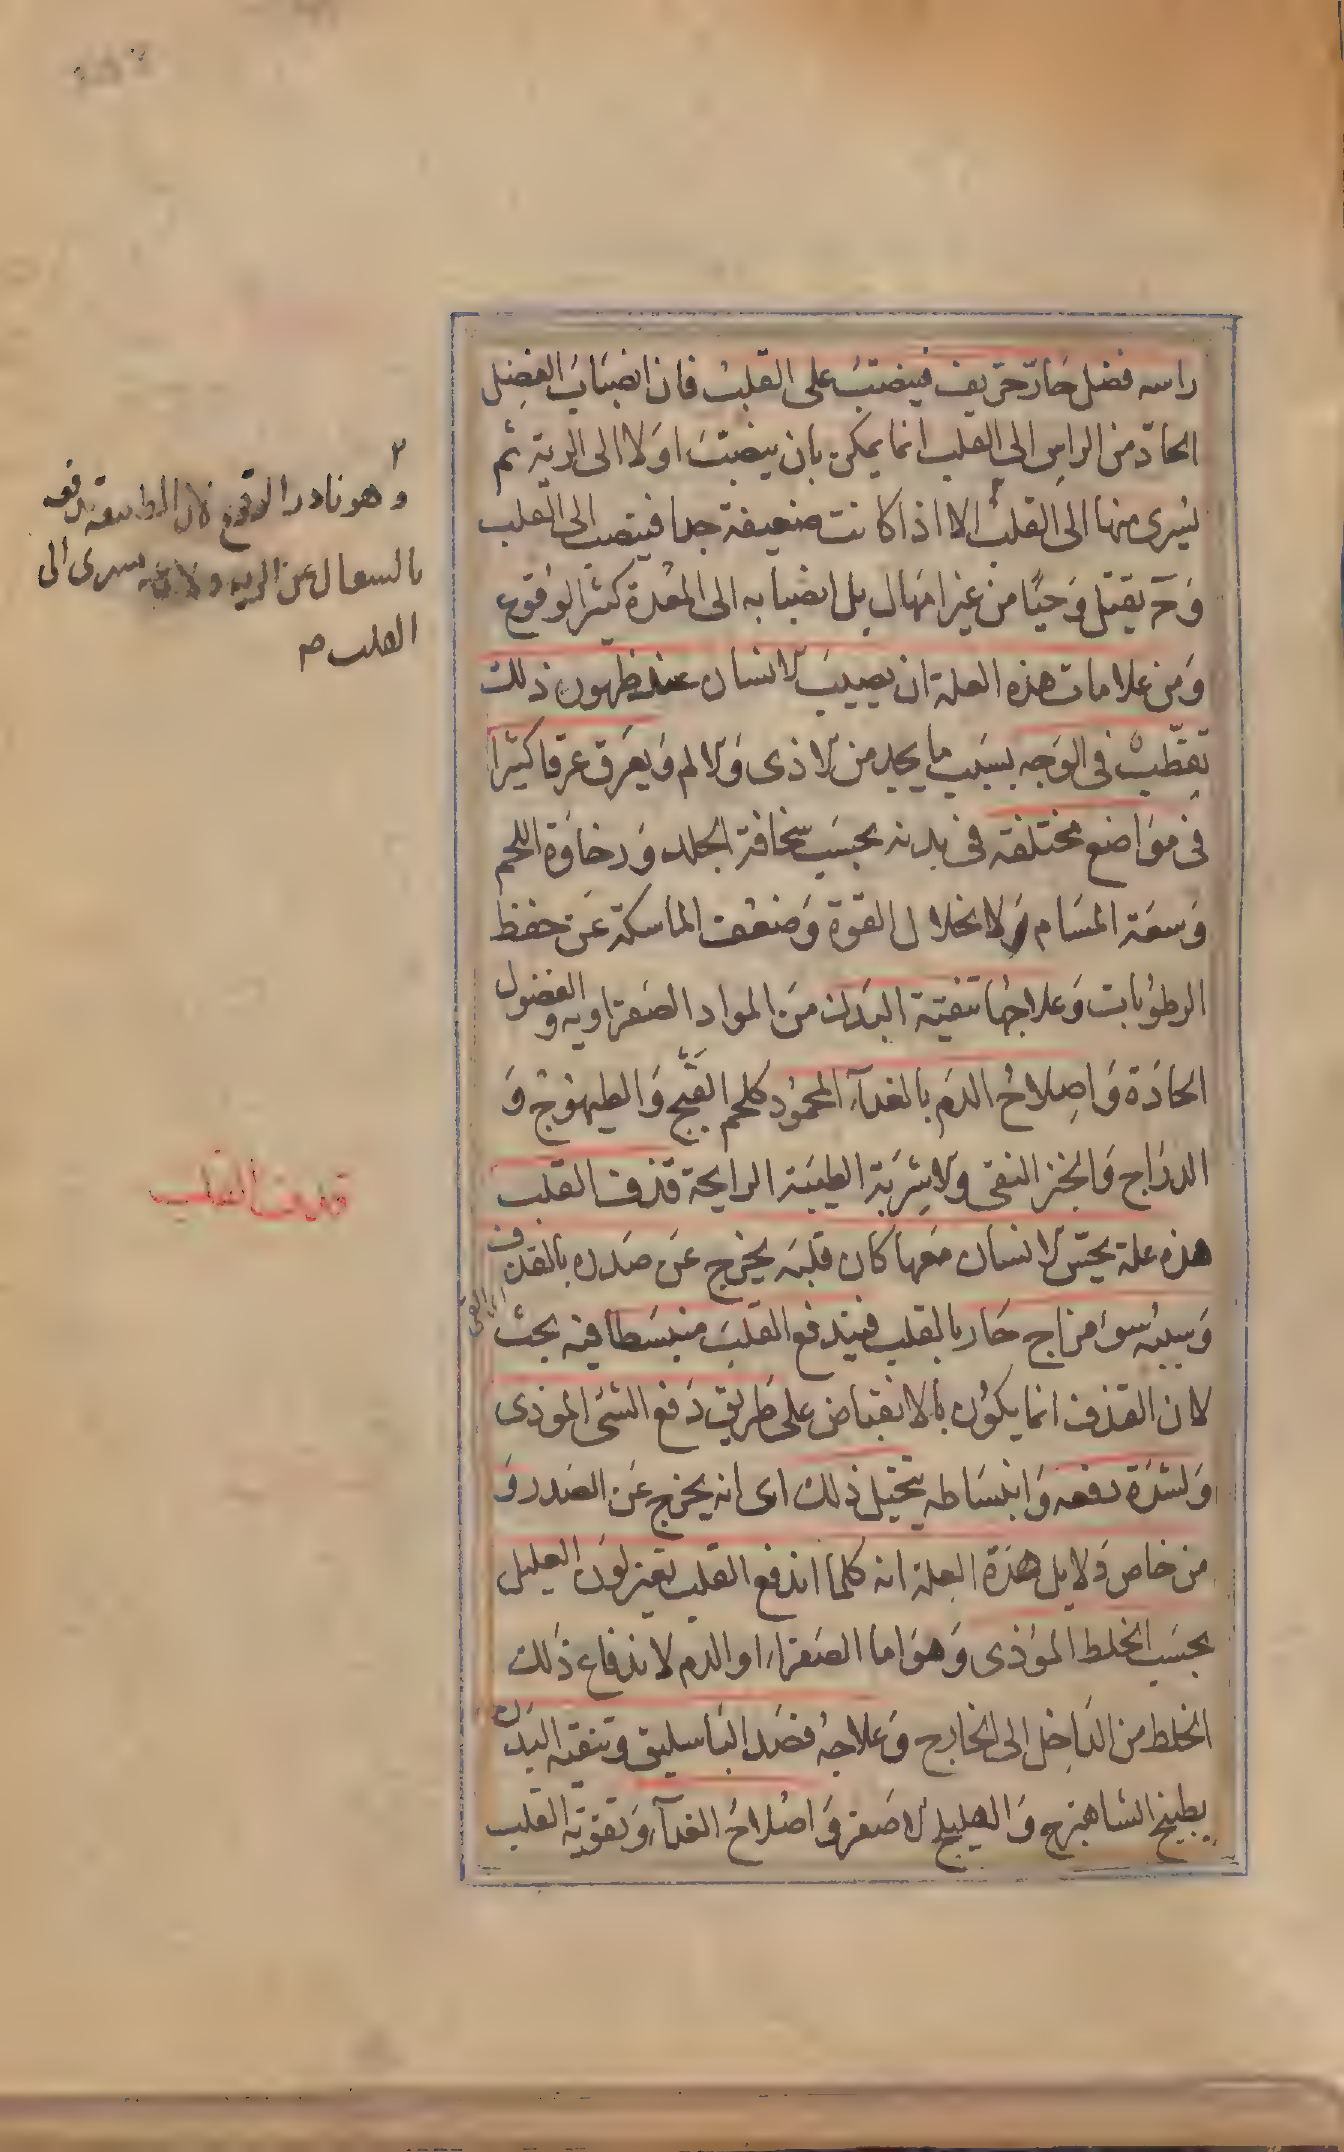 راسه فضل حَارّ حرّيف فينصَبّ على القلب فان انصَبَابَ الفضل
الحادّ من الراس الى القلب انما يمكن بان ينصَبّ اوّلا الى الرية ثم
يَسرى منها الى القلب الا اذا كانت ضعيفة جدا فينصب الى القلب
وَحَ يقتل وَحيًا من غير امهال بل انصبابه الى المعدة كثير الوقوع
وَمن علامات هذه العلة ان يصيبَ الانسان عند ظهور ذلك
تقطّبٌ فى الوَجه بسَبب ما يجد من الاذى وَالالم وَيعرَق عرقا كثيرا
فى موَاضع مختلفة فى بدنه بحسَب سخافة الجلد وَرخاوَة اللحم
وَسعَة المسَام وَلانحلال القوة وَضعْف الماسكة عَن حفظ
الرطوُبات وَعلاجهُا تنقية البَدن مَن المواد الصَفراويه و الفضول
الحادَة وَاِصلاحُ الدَم بالغدآء المحموُد كلحم القَبَج وَالطيهوُج وَ
الدرَاج وَالخبز النقى وَالاشرَبَة الطيبَة الرايحة قذف القلب
هذه علة يحسّ الانسان مَعها كان قلبَه يخرج عَن صَدره بالقذف
اى القى
وَسببُه سوُء مزاج حَار بالقلب فيندفع القلبَ منبسَطا فيه بحث
لان القذف انما يكوُن بالانقباض على طَريق دَفع الشئ الموذى
وَلشدَة دفعه وَانبسَاطه يتخيل ذلك اى انه يخرج عَن الصَدر وَ
من خاص دَلايل هذَة العلة انه كلما اندفع القلب تغير لوَن العليل
بحسَب الخلط الموُذى وَهوَ اما الصَفراء او الدم لاندفاع ذَلك
الخلط من الدَاخِل الى الخارج وَعلاجهُ فصَد البَاسليق وتنقيه البَدن
بطبيخ الشاهترج وَالهليلج الاصَفر وَاصْلاحُ الغدآء وَتقويَه القلب
٢
وهو نادر الوقوع لان الطبيعة تدفعه
بالسعال عن الريه ولا يسرى الى
القلب صح
قذف القلب